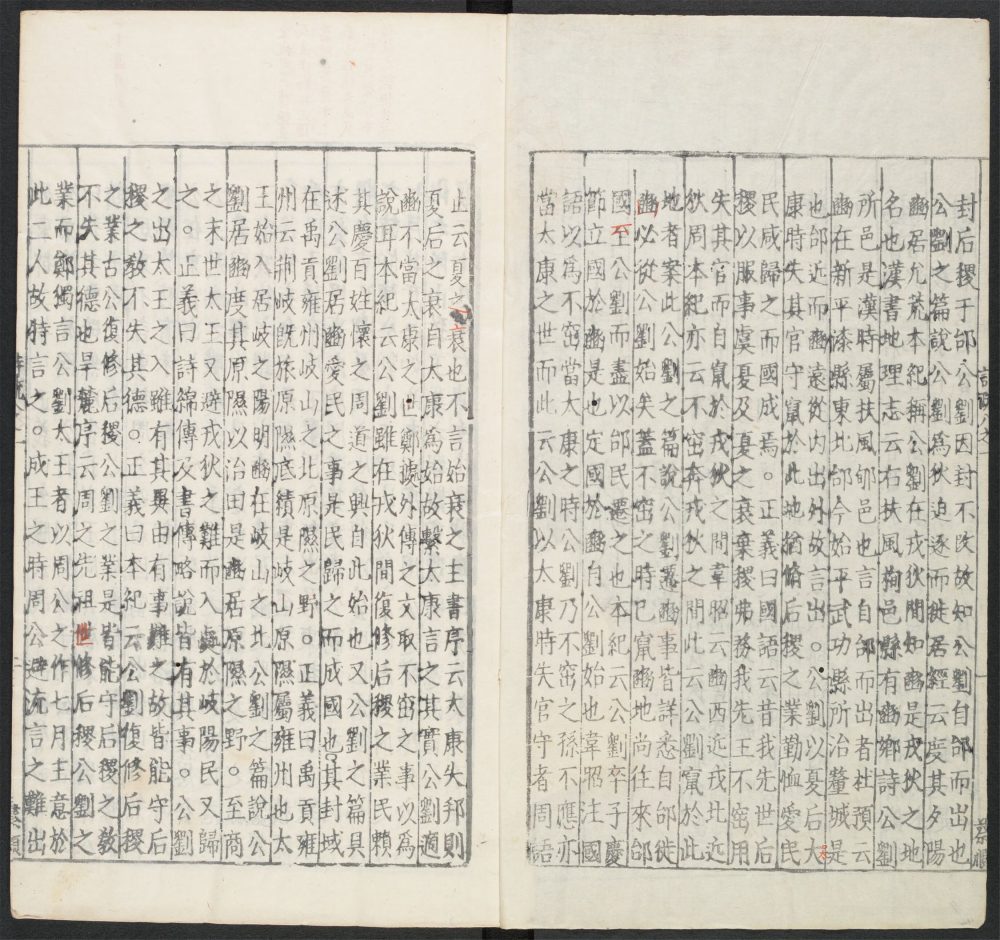 封后稷于邰公劉因封不改故知公劉自邰而出也
公劉之篇說公劉爲狄迫逐而徙居經云度其夕陽
豳居允荒本紀稱公劉在戎狄間知豳是戎狄之地
名也漢書地理志云右扶風栒邑縣有豳鄉詩公劉
所邑是漢時屬扶風郇邑也言自邰而出者杜預云
豳在新平漆縣東北邰今始平武功縣所治釐城是
也邰近而豳遠從內出外故言出。公劉以夏后大
康時失其官守竄於此地猶脩后稷之業勤恤愛民
民咸歸之而國成焉。正義曰國語云昔我先世后
稷以服事虞夏及夏之衰棄稷弗務我先王不窋用
失其官而自竄於戎狄之間韋昭云豳西近戎北近
狄周本紀亦云不窋奔戎狄之間此云公劉竄於此
地者案此公劉之篇說公劉遷豳事皆詳悉自邰徙
豳必從公劉始矣蓋不窋之時已竄豳地尚往來邰
國至公劉而盡以邰民遷之也本紀云公劉卒子慶
節立國於豳是也定國於豳自公劉始也韋昭注國
語以爲不窋當大康之時公劉乃不窋之孫不應亦
當太康之世而此云公劉以太康時失官守者周語
止云夏之衰也不言始衰之主書序云太康失邦則
夏后之衰自太康爲始故繫太康言之其實公劉適
豳不當太康之世鄭據外傳之文取不窋之事以爲
說耳本紀云公劉雖在戎狄間復修后稷之業民賴
其慶百姓懷之周道之興自此始也又公劉之篇具
述公劉居豳愛民之事是民歸之而成國也其封域
在禹貢雍州岐山之北原隰之野。正義曰禹貢雍
州云荊岐旣旅原隰底績是岐山原隰屬雍州也太
王始入居岐之陽明豳在岐山之北公劉之篇說公
劉居豳度其原隰以治田是豳居原隰之野。至商
之末世太王又避戎狄之難而入處於岐陽民又歸
之。正義曰詩緜傳及書傳略說皆有其事。公劉
之出太王之入雖有其異由有事難之故皆能守后
稷之敎不失其德。正義曰本紀云公劉復修后稷
之業古公復修后稷公劉之業是皆能守后稷之敎
不失其德也旱麓序云周之先祖世修后稷公劉之
業而鄭獨言公劉大王者以周公之作七月主意於
此二人故特言之。成王之時周公避流言之難出